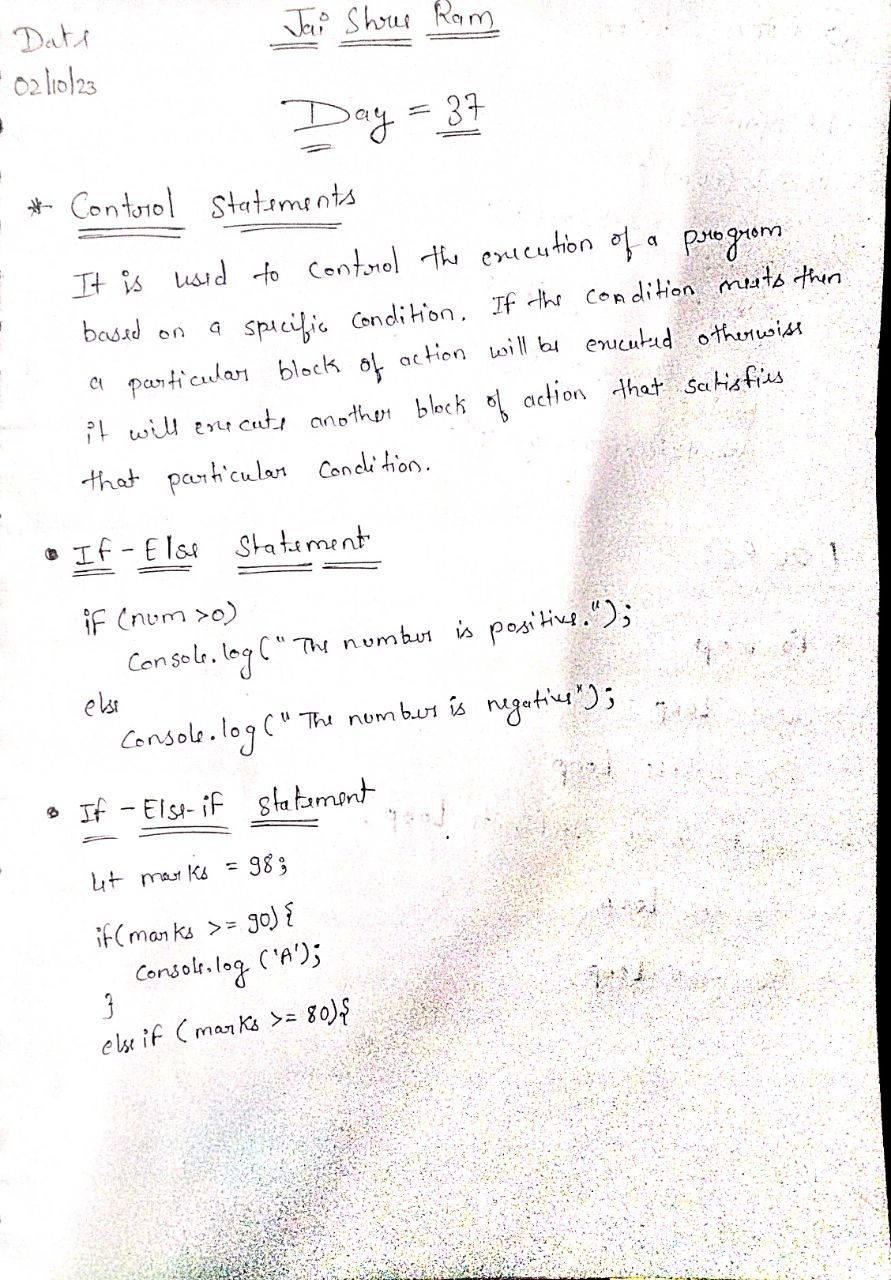 Jai Shree Ram
Date
02/10/23
Day = 37
* Control Statements
It is used to control the execution of a program
based on a specific condition. If the condition meets then
a particular block of action will be executed otherwise
it will execute another block of action that satisfies
that particular condition.
• If - Else Statement
if (num >0)
Console.log (" The number is positive.");
else
Console.log (" The number is negative");
• If - Else-if statement
let marks = 98;
if(marks >= 90) {
Console.log ('A');
}
else if (marks >= 80){